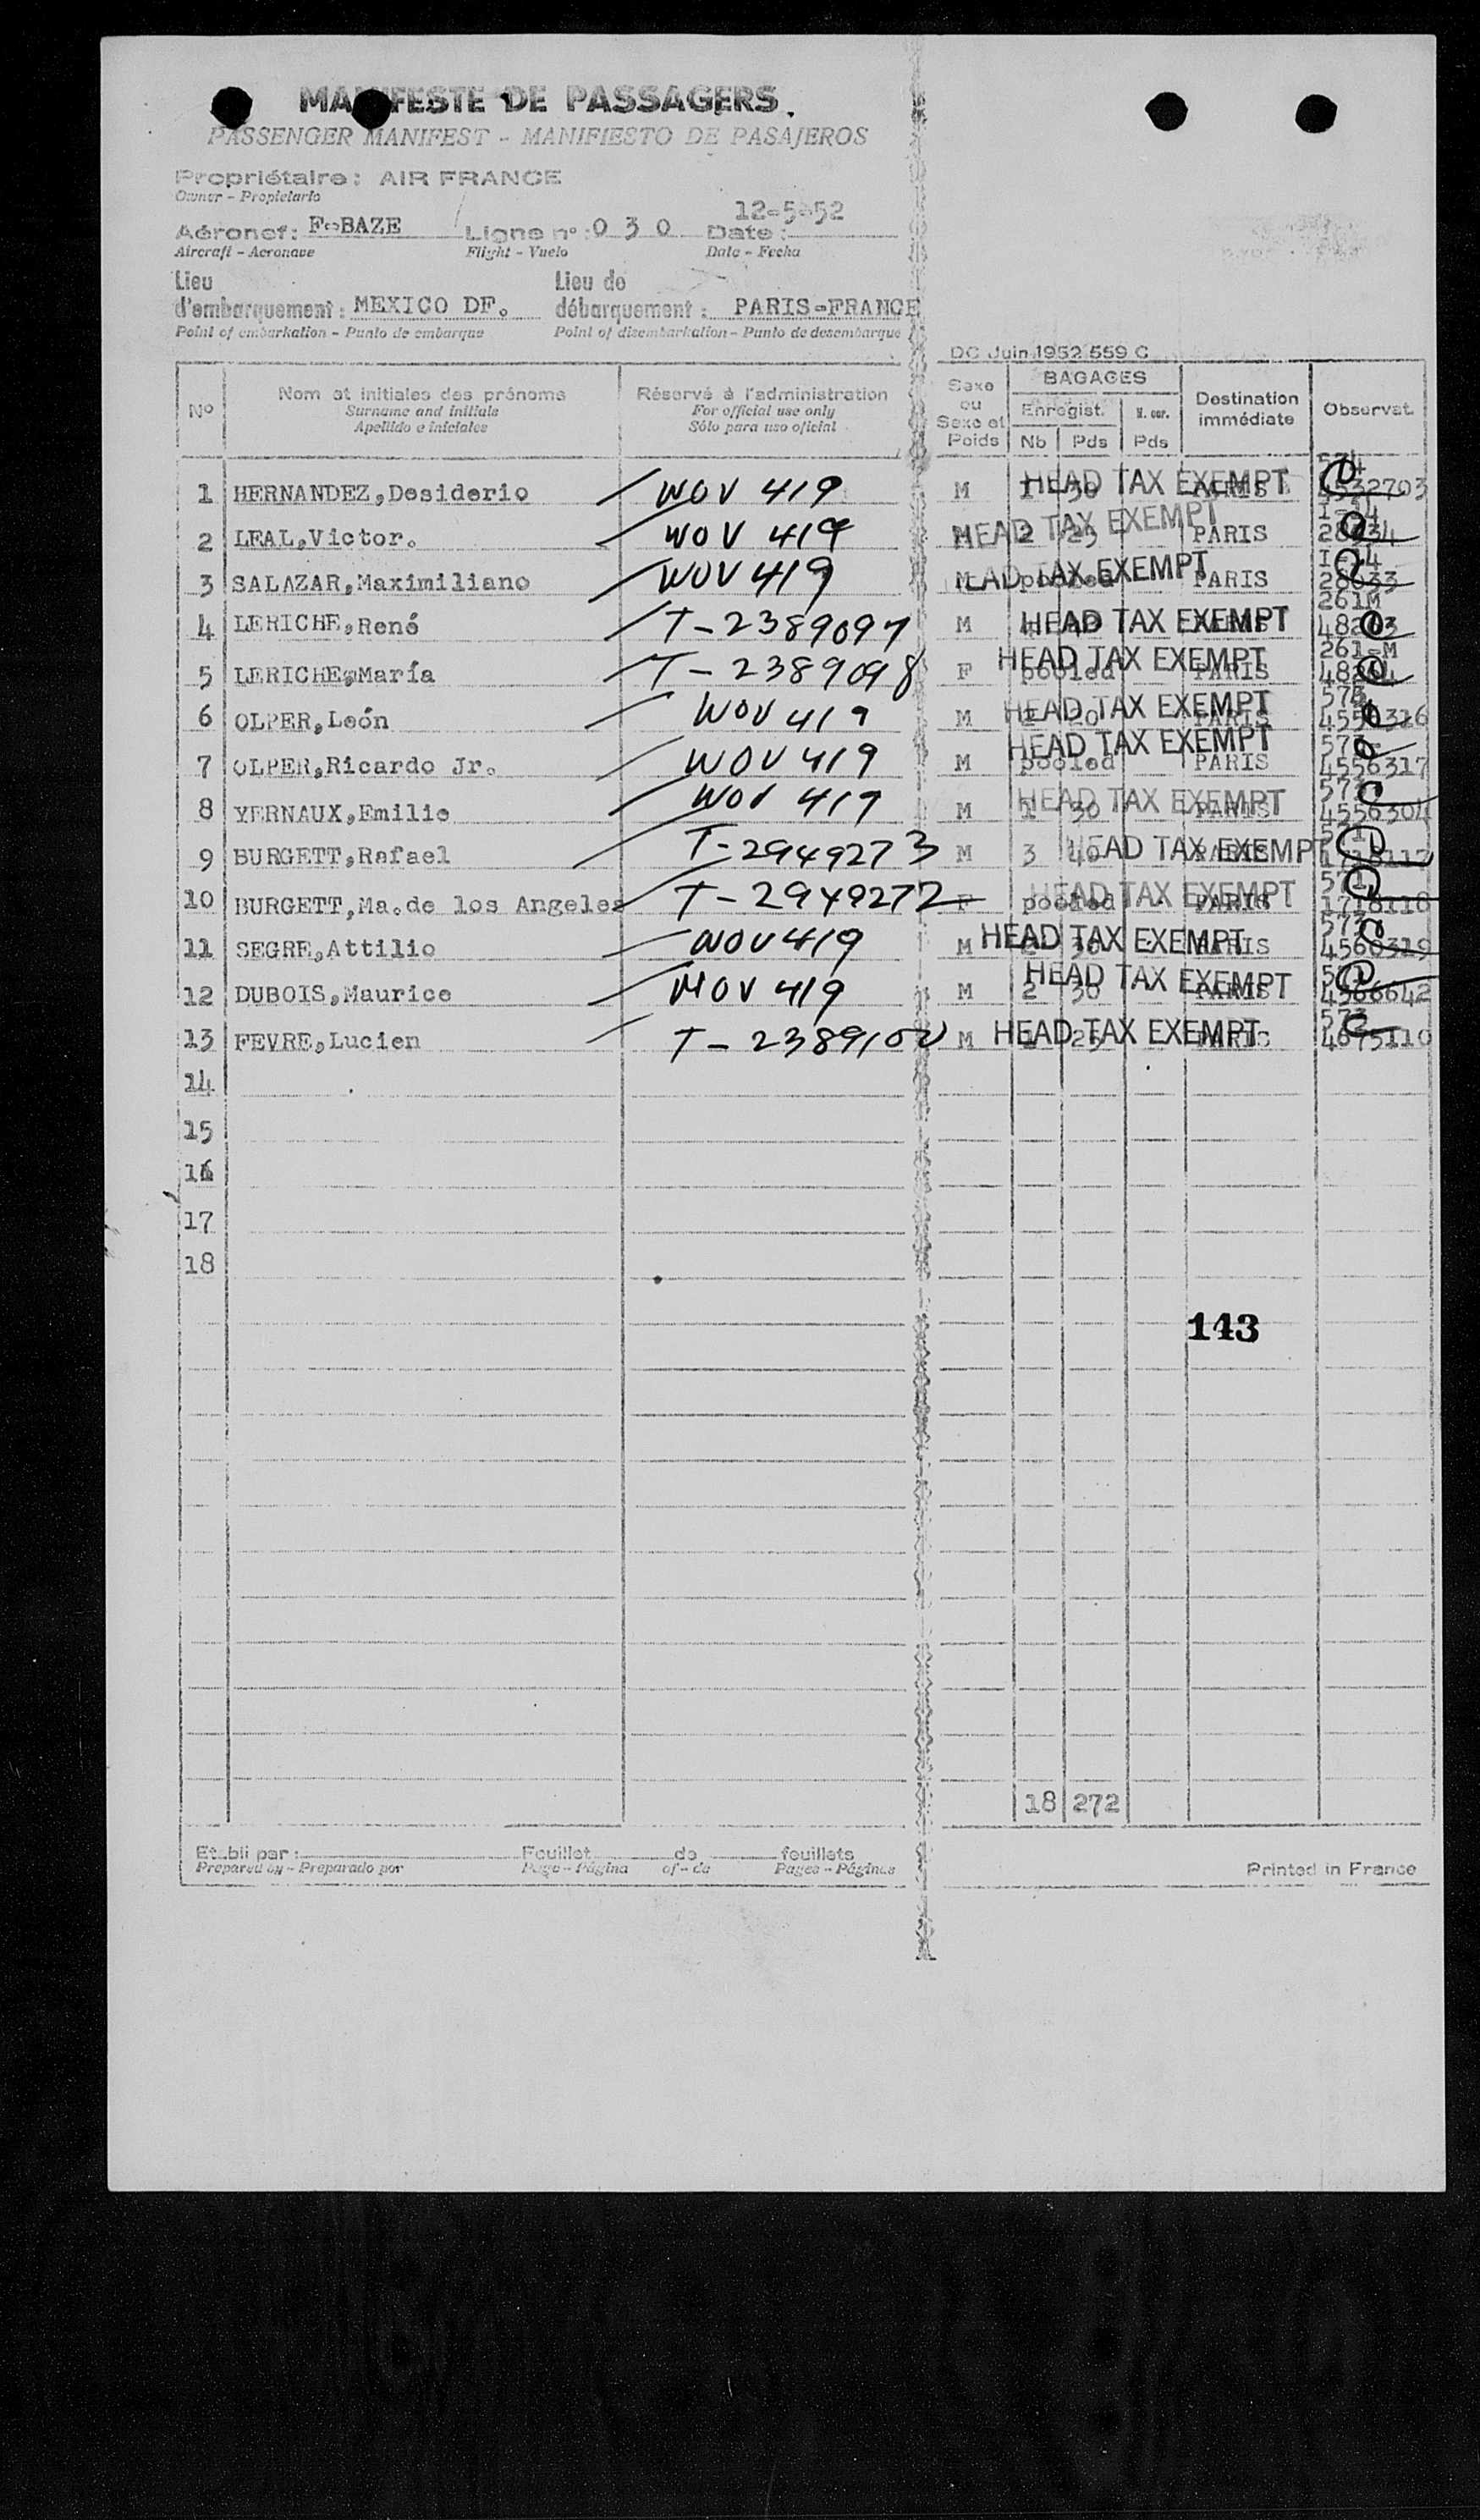 MANIFESTE DE PASSAGERS.
PASSENGER MANIFEST - MANIFIESTO DE PASAJEROS
Propriétaire: AIR FRANCE
Owner - Propietario
12-5-52
Aéronef: F-BAZE Ligne n°: 0 3 0 Date:
Aircraft - Aeronave Flight - Vuelo Date - Fecha
Lieu Lieu de
d'embarquement: MEXICO DF. débarquement: PARIS-FRANCE
Point of embarkation - Punto de embarque Point of disembarkation - Punto de desembarque
DC Juin 1952 559 C
N° Nom et initiales des prénoms Réservé à l'administration Sexe ou Sexe et Poids BAGAGES Destination immédiate Observat.
Surname and initials For official use only Enregist. N. enr.
Apellido e iniciales Sólo para uso oficial Nb Pds Pds
1 HERNANDEZ,Desiderio WOV 419 M 1 30 HEAD TAX EXEMPT PARIS 574 4532703
2 LEAL,Victor. WOV 419 M 2 25 HEAD TAX EXEMPT PARIS I-54
3 SALAZAR,Maximiliano WOV 419 M pooled HEAD TAX EXEMPT PARIS 28033
4 LERICHE,René T-2389097 M HEAD TAX EXEMPT PARIS 261M
5 LERICHE,María T-2389098 F pooled HEAD TAX EXEMPT PARIS 261-M
6 OLPER,León WOV 419 M HEAD TAX EXEMPT PARIS 573 4556316
7 OLPER,Ricardo Jr. WOV 419 M pooled HEAD TAX EXEMPT PARIS 573- 4556317
8 YERNAUX,Emilio WOV 419 M 1 30 HEAD TAX EXEMPT PARIS 573 4556304
9 BURGETT,Rafael T-2949273 M 3 40 HEAD TAX EXEMPT PARIS 571 1718117
10 BURGETT,Ma.de los Angeles T-2949272 F pooled HEAD TAX EXEMPT PARIS 571 1718118
11 SEGRE,Attilio WOV 419 M 30 HEAD TAX EXEMPT PARIS 573 4560319
12 DUBOIS,Maurice WOV 419 M 2 30 HEAD TAX EXEMPT PARIS 4566642
13 FEVRE,Lucien T-2389100 M 25 HEAD TAX EXEMPT PARIS 573 4675110
14
15
16
17
18
143
18 272
Etabli par: Feuillet de feuillets
Prepared by - Preparado por Page - Página of - de Pages - Páginas
Printed in France